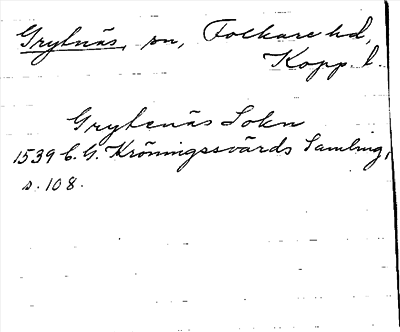 Grytnäs, sn, Folkare hd,
Kopp. l.
Grytenäs Sokn
1539 C. G. Kröningssvärds Samling,
s. 108.